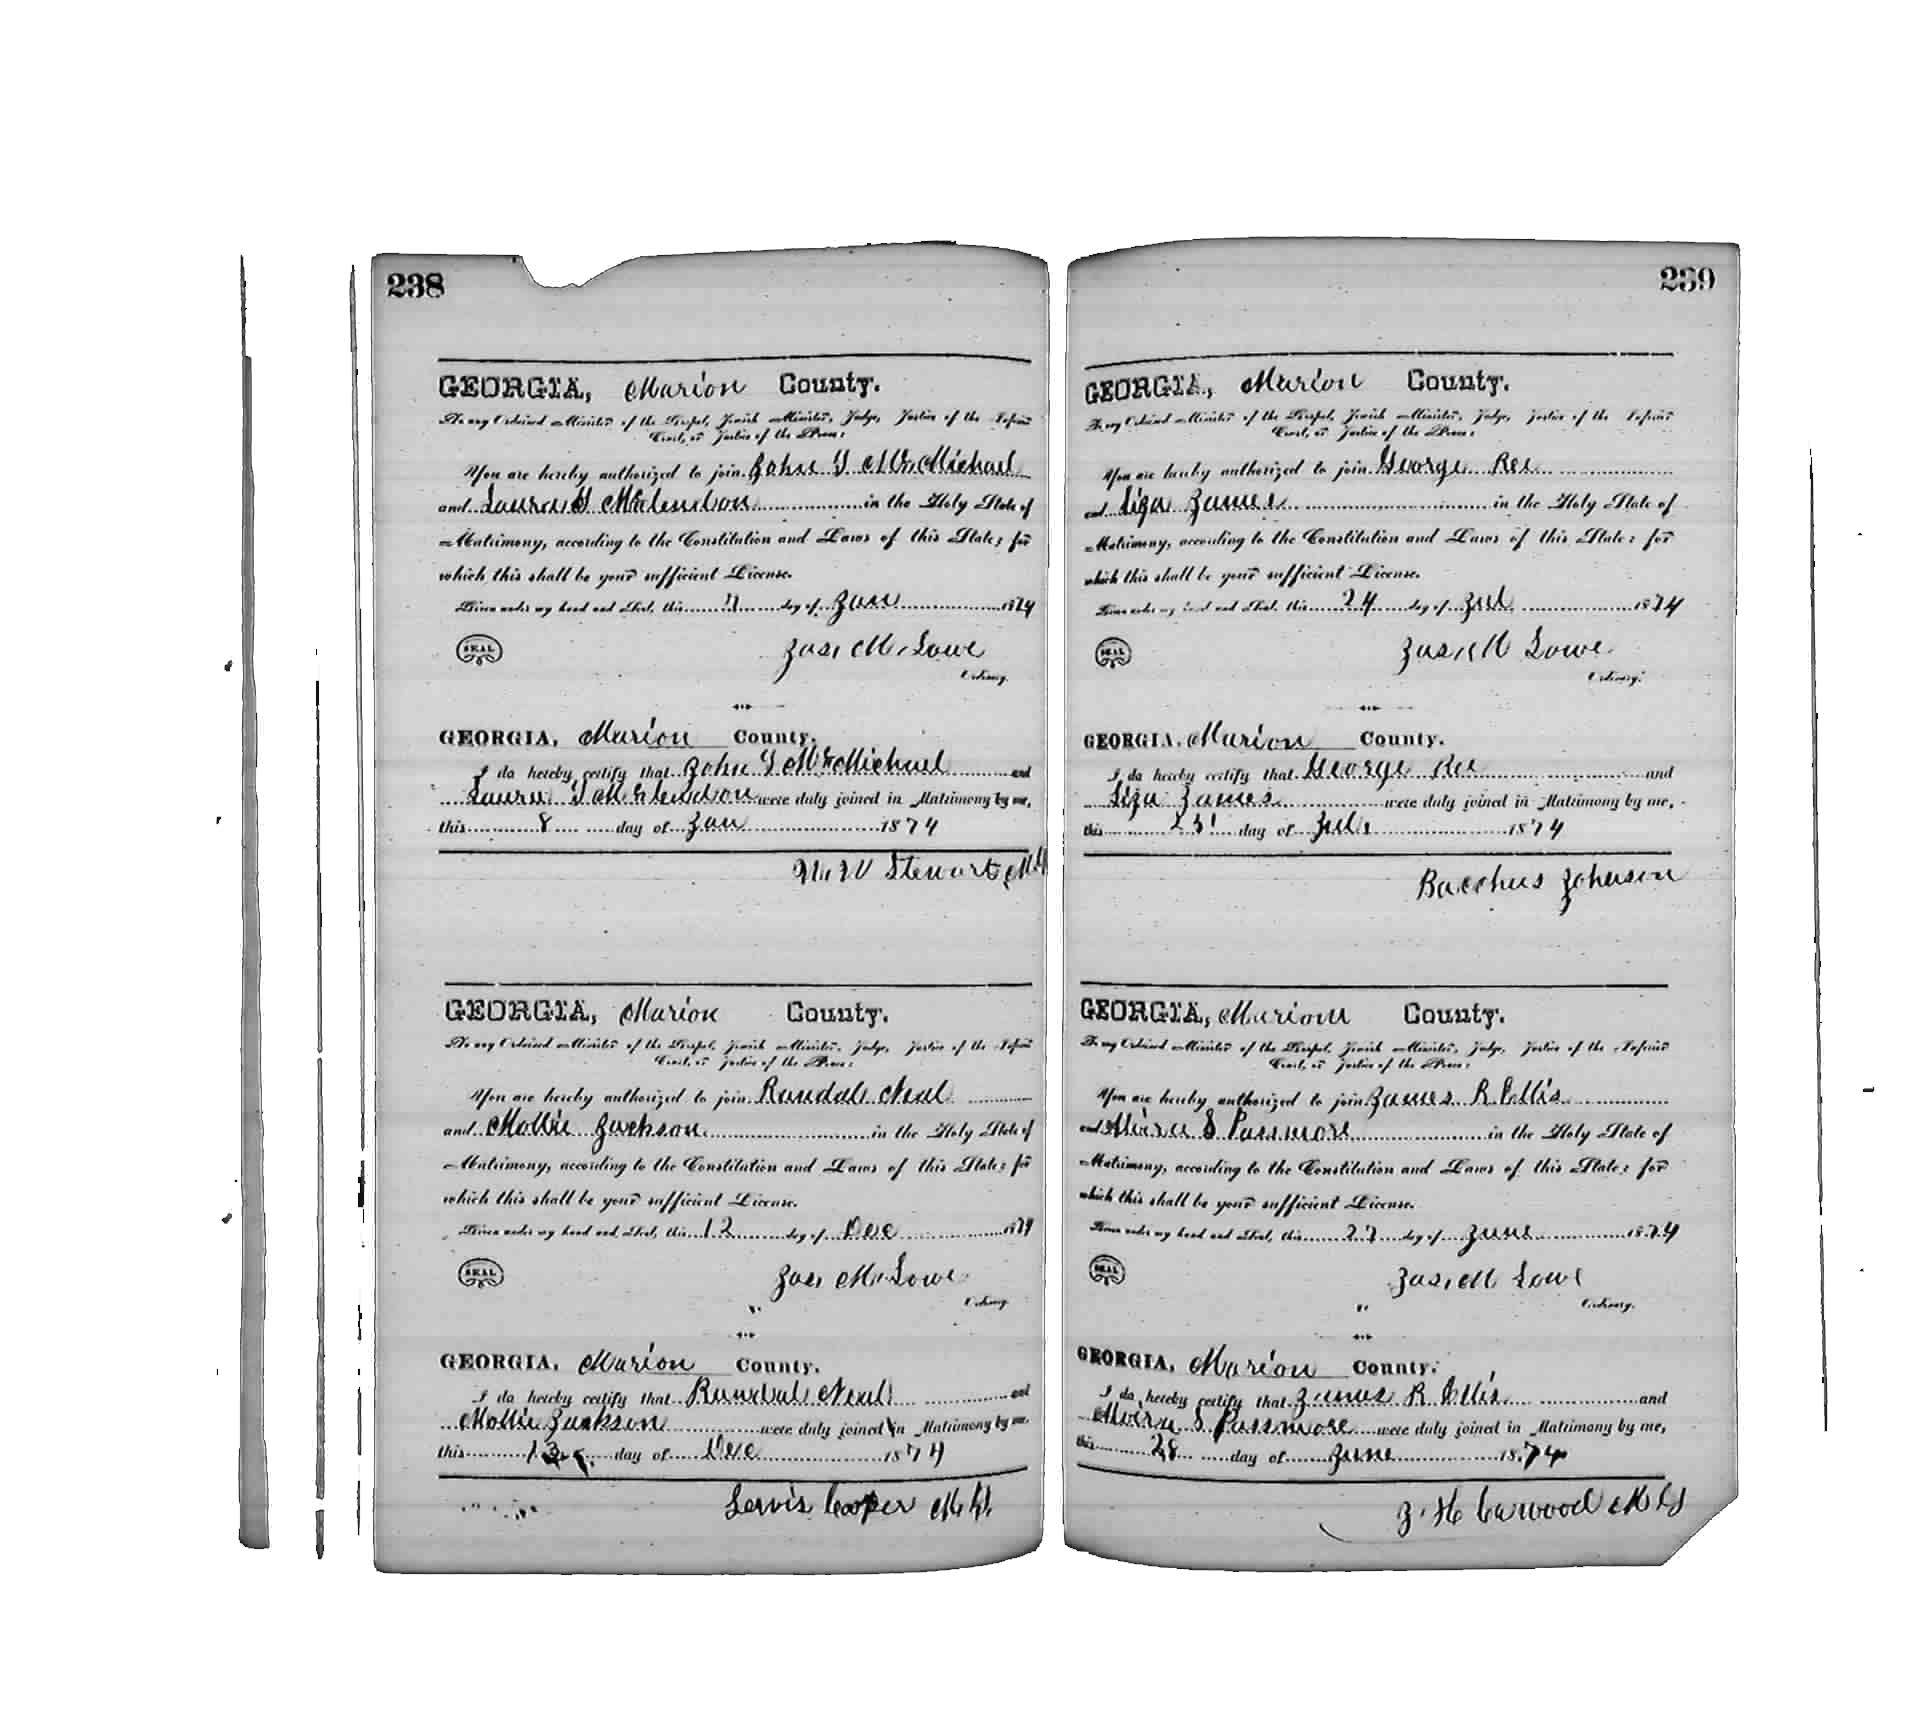 238
GEORGIA, Marion County.
To any Ordained Minister of the Gospel, Jewish Minister, Judge, Justice of the Inferior
Court, or Justice of the Peace:
You are hereby authorized to join John T McMichael
and Laura McLendon in the Holy State of
Matrimony, according to the Constitution and Laws of this State; for
which this shall be your sufficient License.
Given under my hand and Seal, this 7 day of Jan 1874
SEAL
Jas. M. Lowe
Ordinary.
GEORGIA, Marion County.
I do hereby certify that John T McMichael and
Laura McLendon were duly joined in Matrimony by me,
this 8 day of Jan 1874
Stewart M.G
GEORGIA, Marion County.
To any Ordained Minister of the Gospel, Jewish Minister, Judge, Justice of the Inferior
Court, or Justice of the Peace:
You are hereby authorized to join Randal Neal
and Mollie Jackson in the Holy State of
Matrimony, according to the Constitution and Laws of this State; for
which this shall be your sufficient License.
Given under my hand and Seal, this 12 day of Dec 1874
SEAL
Jas. M. Lowe
Ordinary.
GEORGIA, Marion County.
I do hereby certify that Randal Neal and
Mollie Jackson were duly joined in Matrimony by me
this 13 day of Dec 1874
Lewis Cooper M.G.
239
GEORGIA, Marion County.
To any Ordained Minister of the Gospel, Jewish Minister, Judge, Justice of the Inferior
Court, or Justice of the Peace:
You are hereby authorized to join George Ree
and Liza James in the Holy State of
Matrimony, according to the Constitution and Laws of this State; for
which this shall be your sufficient License.
Given under my hand and Seal, this 24 day of Jul 1874
SEAL
Jas. M Lowe
Ordinary.
GEORGIA, Marion County.
I do hereby certify that George Ree and
Liza James were duly joined in Matrimony by me,
this 25 day of Jul. 1874
Bacchus Johnson
GEORGIA, Marion County.
To any Ordained Minister of the Gospel, Jewish Minister, Judge, Justice of the Inferior
Court, or Justice of the Peace:
You are hereby authorized to join James R. Ellis
and S Passmore in the Holy State of
Matrimony, according to the Constitution and Laws of this State; for
which this shall be your sufficient License.
Given under my hand and Seal, this 27 day of June 1874
SEAL
Jas. M Lowe
Ordinary.
GEORGIA, Marion County.
I do hereby certify that James R Ellis and
S Passmore were duly joined in Matrimony by me,
this 28 day of June 1874
J. H. Carwood M G